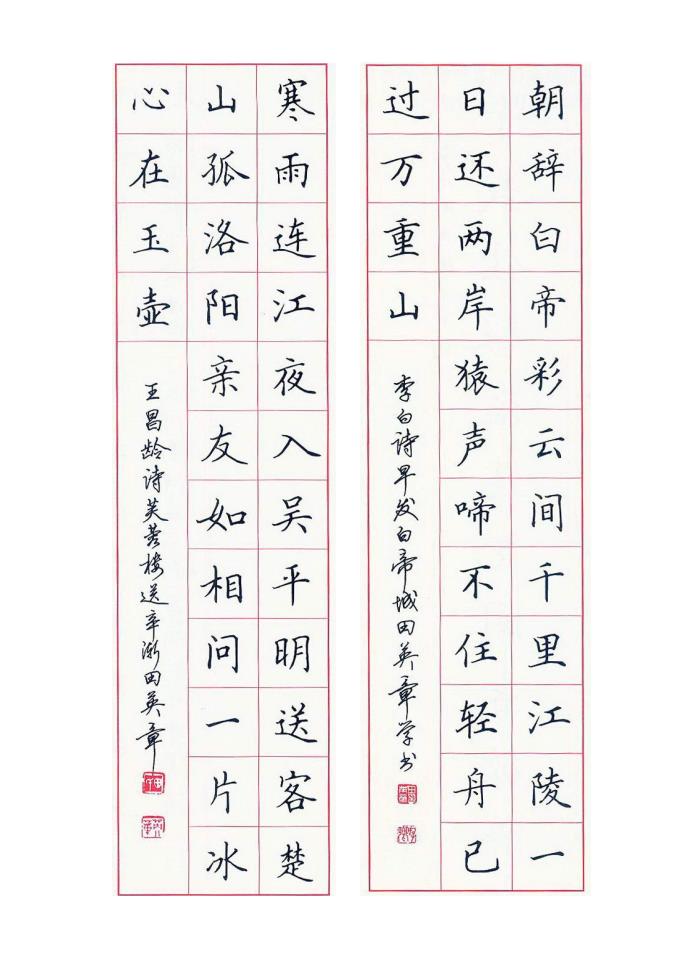 朝辞白帝彩云间千里江陵一
日还两岸猿声啼不住轻舟已
过万重山
李白诗早发白帝城田英章学书
寒雨连江夜入吴平明送客楚
山孤洛阳亲友如相问一片冰
心在玉壶
王昌龄诗芙蓉楼送辛渐田英章